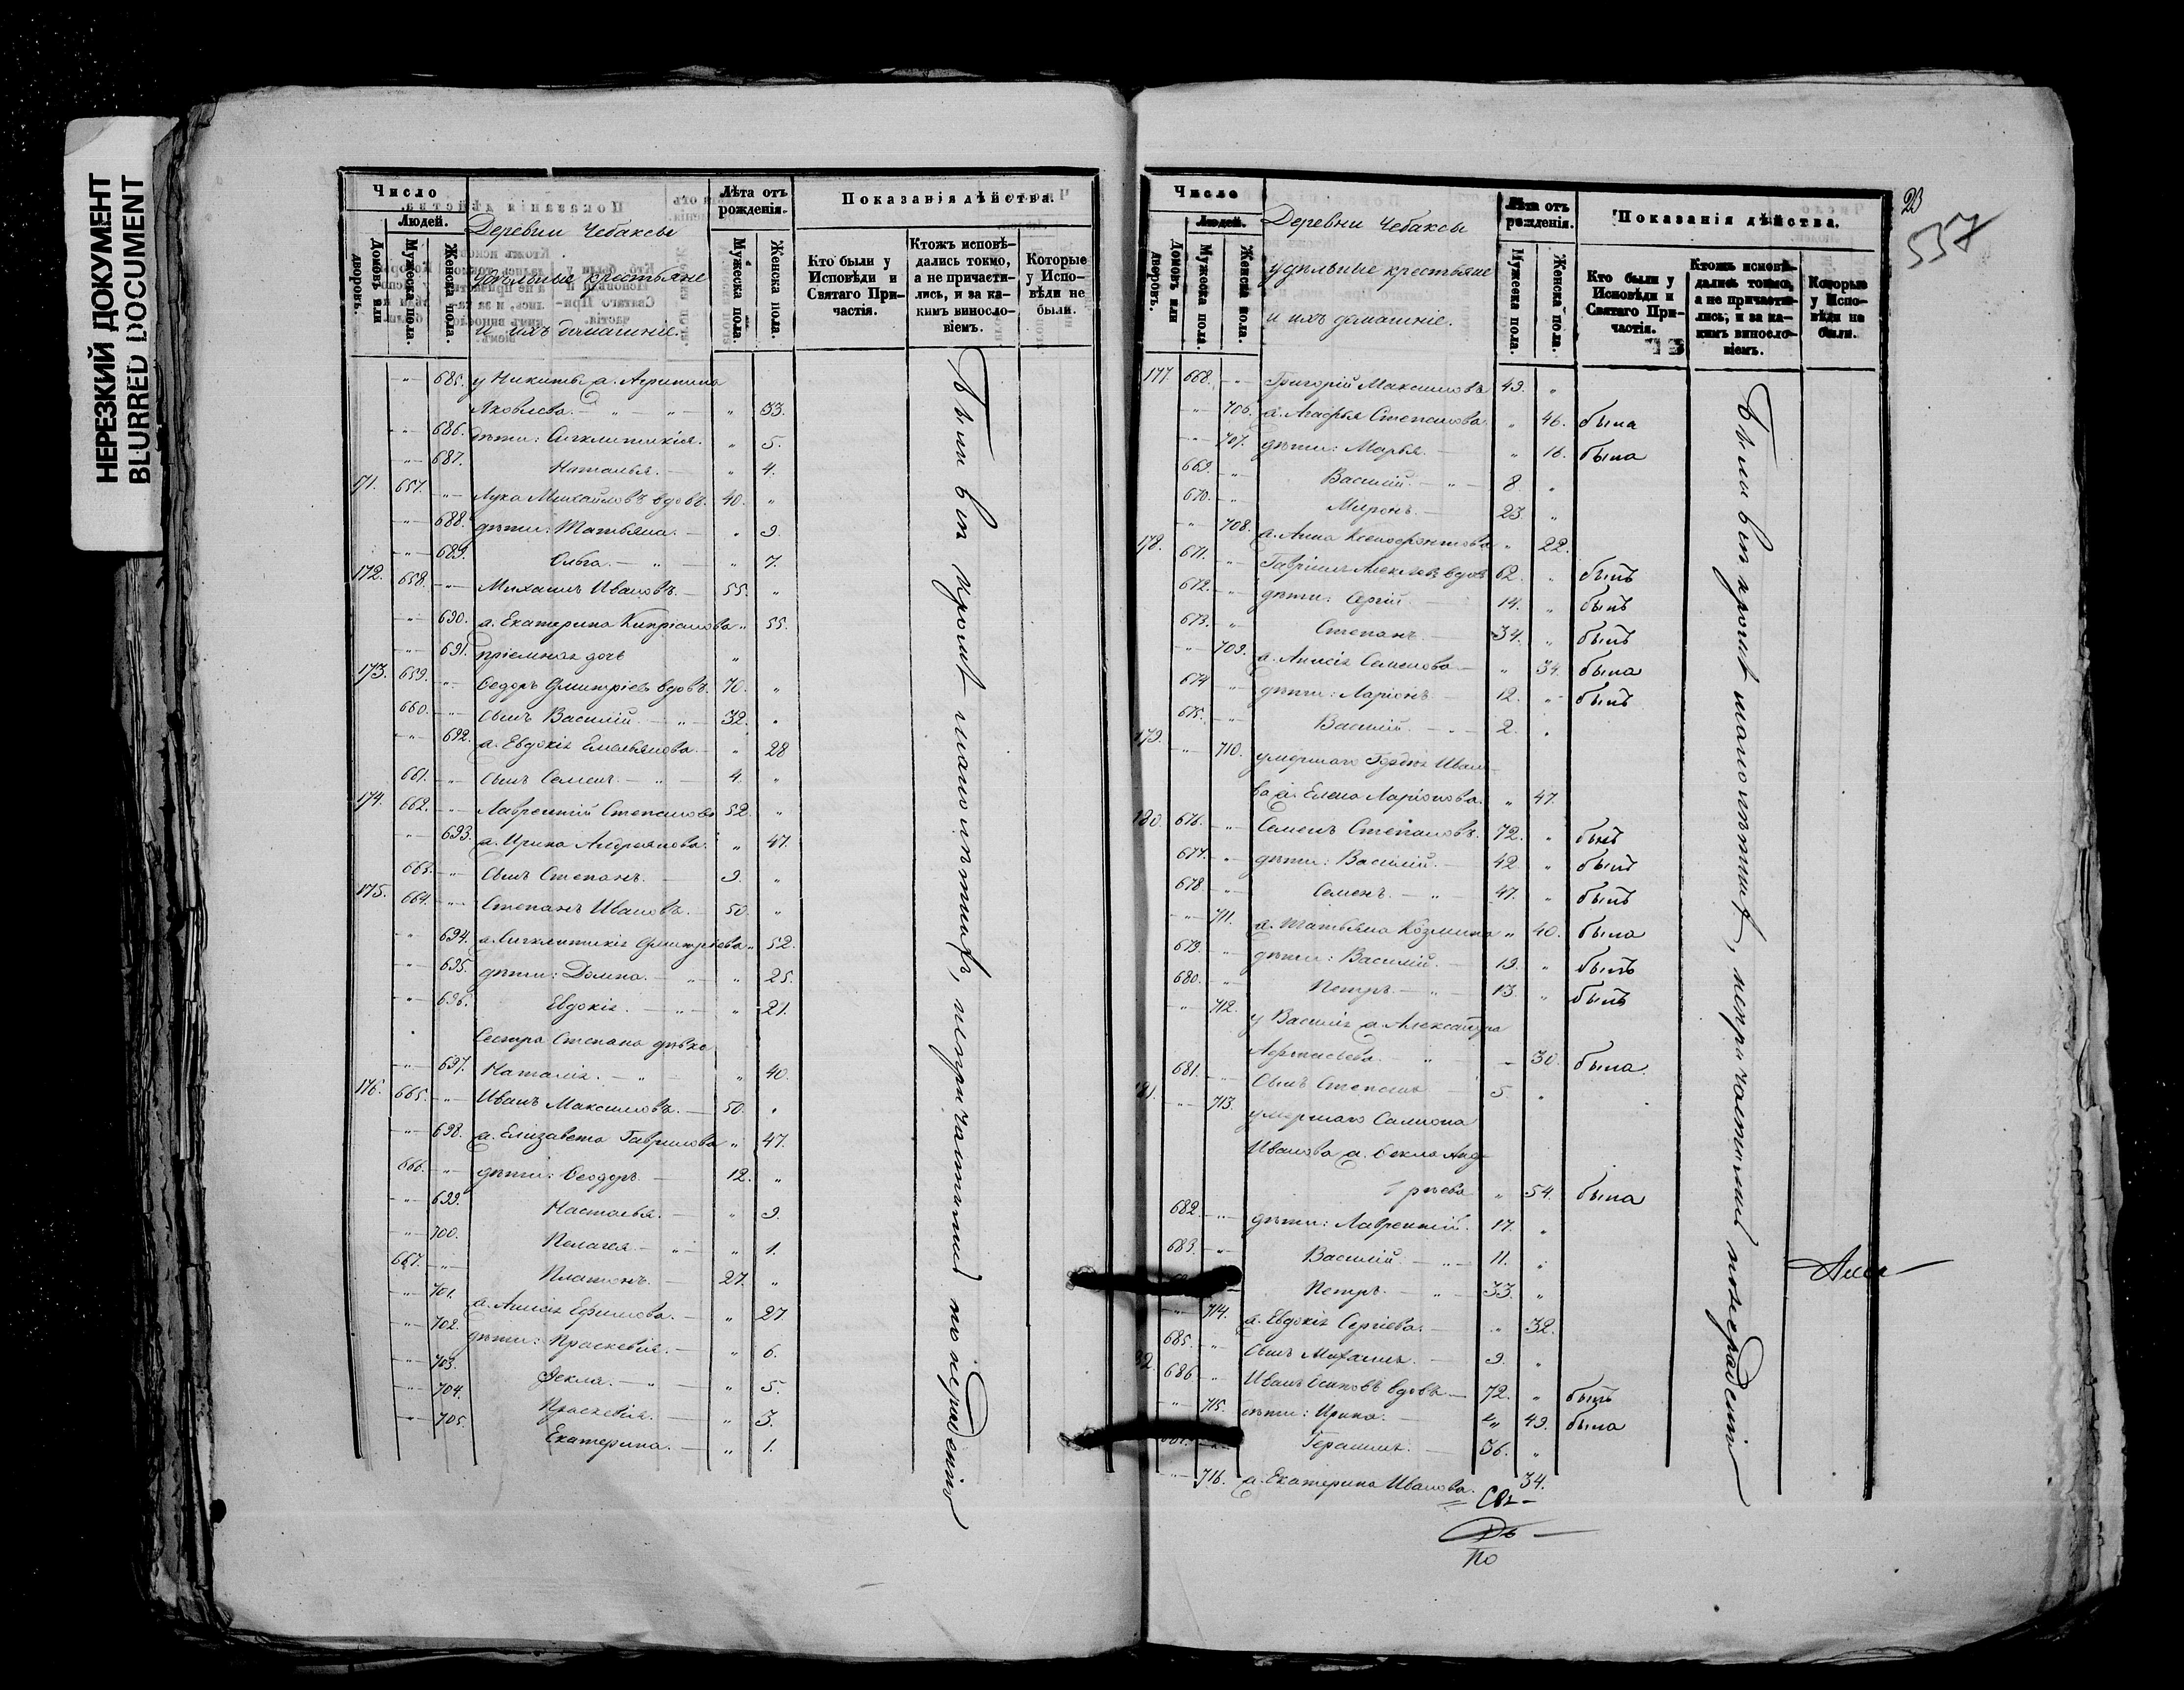 НЕРЕЗКИЙ ДОКУМЕНТ
BLURRED DOCUMENT
Число
Людей.
Домовъ или дворовъ.
Мужеска пола.
Женска пола.
Деревни Чебаксы
удѣльные крестьяне
и ихъ домашніе.
Лѣта отъ рожденія.
Мужеска пола.
Женска пола.
Показанія дѣйства.
Кто были у Исповѣди и Святаго Причастія.
Ктожъ исповѣдались токмо, а не причастились, и за какимъ винословіемъ.
Которые у Исповѣди не были.
" 685. у Никиты ж. Агрипина
Яковлева. " 33.
" 686. дѣти: Сигклитикія. " 5.
" 687. Наталья. " 4.
171. 657. " Лука Михайловъ вдовъ. 40. "
" 688. дѣти: Татьяна. " 9.
" 689. Ольга. " 7.
172. 658. " Михаилъ Ивановъ. 55. "
" 690. ж. Екатерина Кипріанова " 55.
" 691. пріемная дочь "
173. 659. " Ѳедоръ Дмитріевъ вдовъ. 70. "
660. " Сынъ Василій. 32. "
" 692. ж. Евдокія Емельянова. " 28
661. " Сынъ Семенъ. 4. "
174. 662. " Лаврентій Степановъ 52. "
" 693. ж. Ирина Андреянова. " 47.
663. " Сынъ Степанъ. 9. "
175. 664. " Степанъ Ивановъ. 50. "
" 694. ж. Сигклитикія Дмитріева " 52.
" 695. дѣти: Домна. " 25.
" 696. Евдокія. " 21.
Сестра Степана дѣвка
" 697. Наталія. " 40.
176. 665. " Иванъ Максимовъ. 50. "
" 698. ж. Елизавета Гаврилова " 47.
666. " дѣти: Ѳеодоръ. 12. "
" 699. Настасья. " 9.
" 700. Пелагея. " 1.
667. " Платонъ. 27. "
" 701. ж. Анисія Ефимова. " 27.
" 702. дѣти: Праскевія. " 6.
" 703. Ѳекла. " 5.
" 704. Праскевія. " 3.
" 705. Екатерина. " 1.
Были вси кромѣ малолѣтнихъ, непричастились по нерадѣнію
23
557
Число
Людей.
Домовъ или дворовъ.
Мужеска пола.
Женска пола.
Деревни Чебаксы
удѣльные крестьяне
и ихъ домашніе.
Лѣта отъ рожденія.
Мужеска пола.
Женска пола.
Показанія дѣйства.
Кто были у Исповѣди и Святаго Причастія.
Ктожъ исповѣдались токмо, а не причастились, и за какимъ винословіемъ.
Которые у Исповѣди не были.
177. 668. " Григорій Максимовъ 49. "
" 706. ж. Агафья Степанова. " 46. была
" 707. дѣти: Марья. " 16. была
669. " Василій. 8 "
670. " Миронъ. 23 "
" 708. ж. Анна Ксенофонтова " 22.
178. 671. " Гавріилъ вдовъ 62. " былъ
672. " дѣти: 14. " былъ
673. " Степанъ. 34. " былъ
" 709. ж. Анисія Семенова " 34. была
674 " дѣти: Ларіонъ 12. " былъ
675. " Василій. 2. "
179. " 710. умершаго Гордѣя Ивано
ва ж. Елена Ларіонова. " 47.
180. 676. " Семенъ Степановъ. 72. " былъ
677. " дѣти: Василій. 42. " былъ
678. " Семенъ. 47. " былъ
" 711. ж. Татьяна Козмина " 40. была
679. " дѣти: Василій. 19. " былъ
680. " Петръ. 13. " былъ
" 712. у Василія ж. Александра
" 30. была.
681. " Сынъ Степанъ 5. "
181. " 713. умершаго Самсона
Иванова ж. Ѳекла Анд
реева " 54. была
682. " дѣти: Лаврентій. 17. "
683. " Василій. 11. "
Петръ. 33. "
" 714. ж. Евдокія Сергіева. " 32.
685. " Сынъ Михаилъ. 9. "
82. 686 " Иванъ Осиповъ вдовъ 72. " былъ
" 715. дѣти: Ирина. " 49. была
Герасимъ. 36. "
" 716. ж. Екатерина Иванова. 34.
Были вси кромѣ малолѣтнихъ, непричастились по нерадѣнію
По